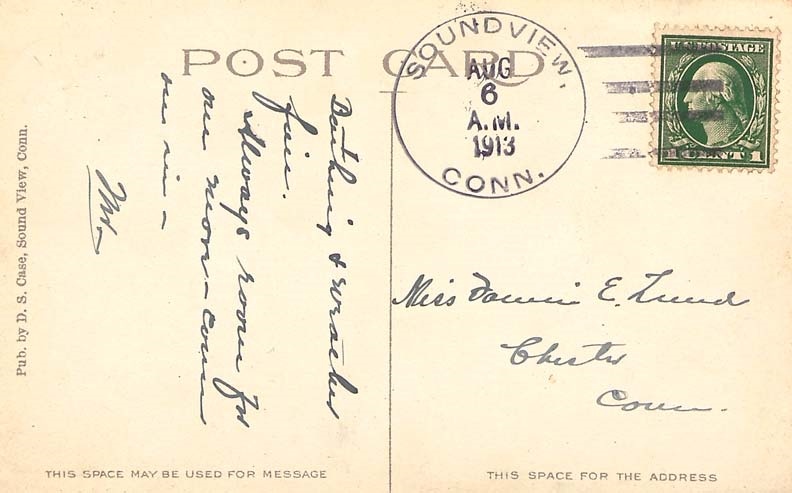 POST CARD
SOUNDVIEW,
AUG
6
A.M.
1913
CONN.
U.S. POSTAGE
1 CENT 1
Bathing & weather
fine.
Always room for
one more - come
on in -
Pub. by D. S. Case, Sound View, Conn.
Miss Fannie E. Lund
Chester
Conn.
THIS SPACE MAY BE USED FOR MESSAGE
THIS SPACE FOR THE ADDRESS